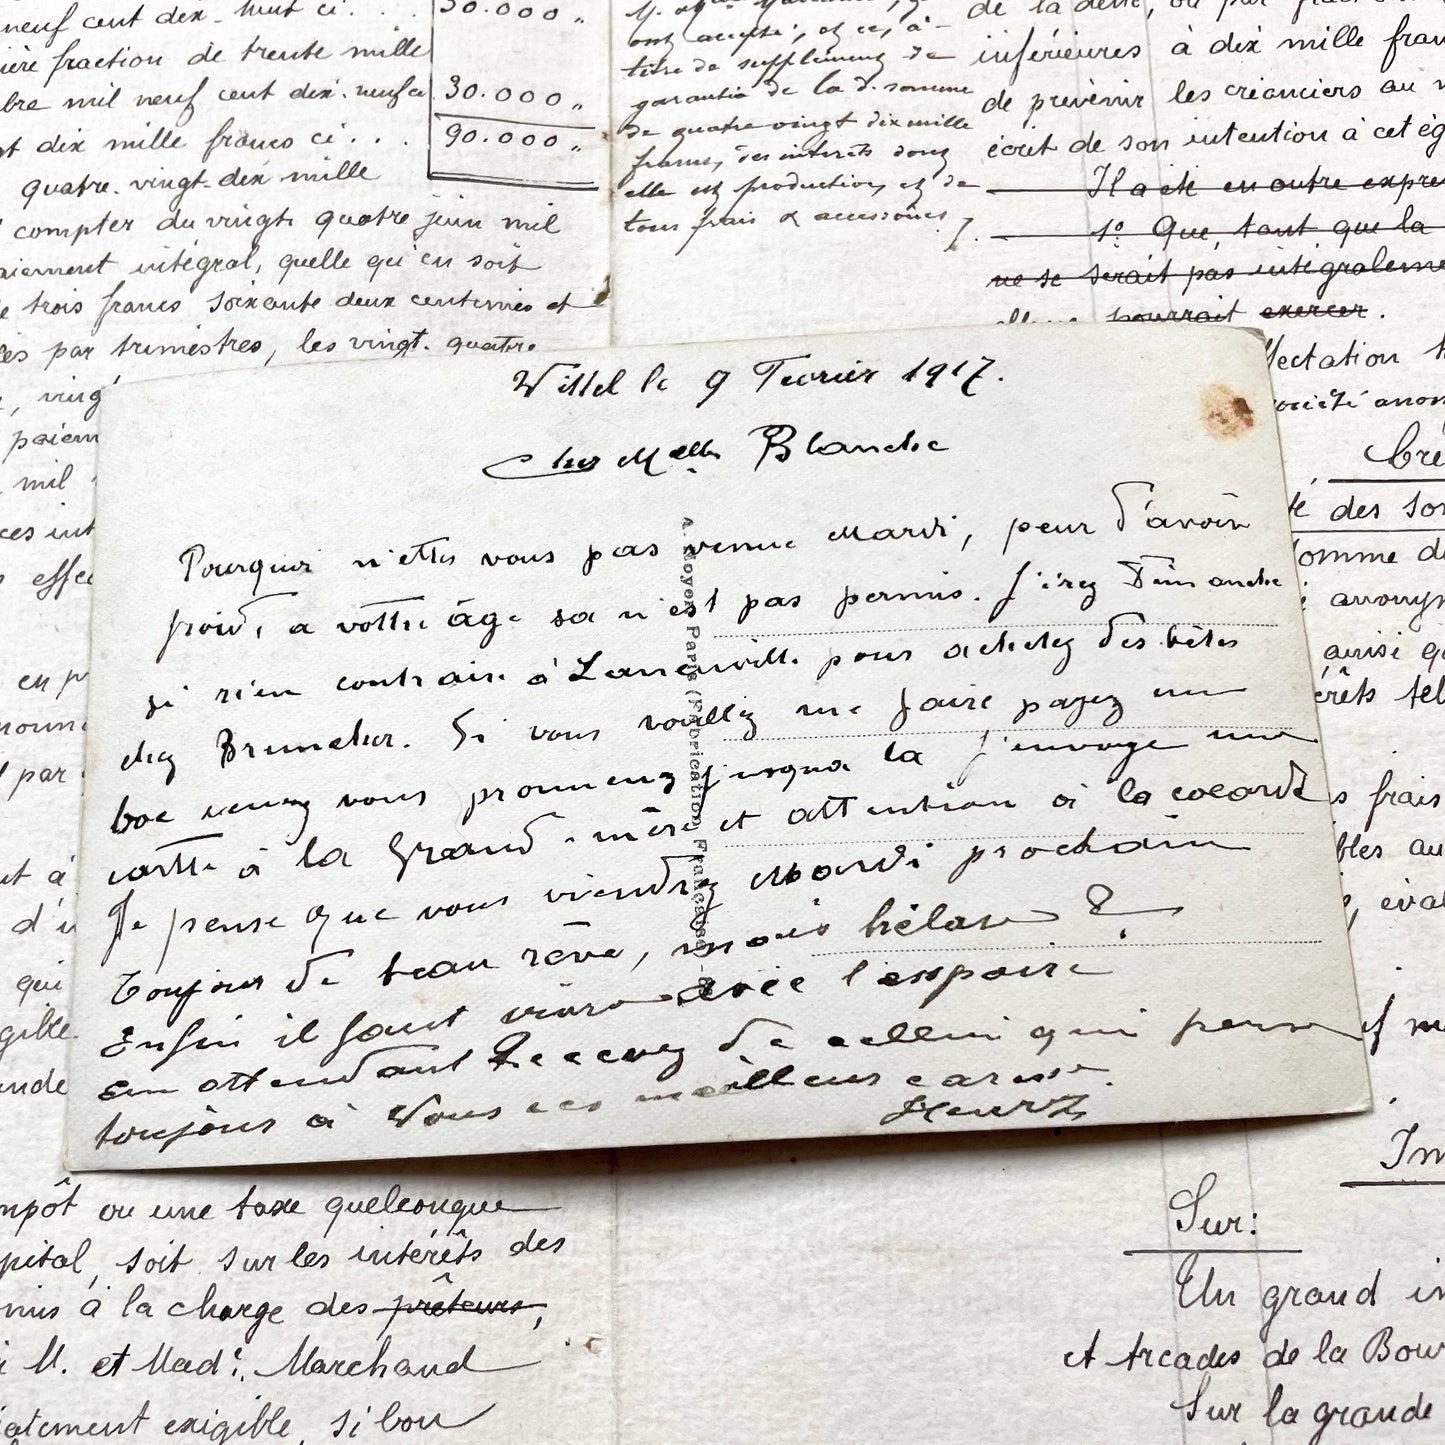 neuf cent dix-huit ci. . . .
30.000 "
ière fraction de trente mille
bre mil neuf cent dix-neuf ci
30.000 "
t dix mille francs ci . . .
90.000 "
quatre-vingt-dix mille
compter du vingt quatre juin mil
aiement intégral, quelle qu'en soit
e trois francs soixante deux centimes et
les par trimestres, les vingt-quatre
, ving
paiem
mil
ces int
effe
en p
l par
ont accepté, et ce, à
titre de supplément de
garantie de la d. somme
de quatre vingt dix mille
francs, des intérêts dont
elle est productive, et de
tous frais & accessoires
de la dette, ou par fract
inférieures à dix mille fran
de prévenir les créanciers au m
écrit de son intention à cet ég
Il a été en outre expre
1º Que, tant que la
ne se serait pas intégraleme
pourrait exercer.
ffectation h
société anon
Cré
té des som
omme d
anonym
ainsi q
érêts tel
s frais
bles au
, éval
Vittel le 9 Fevrier 1917.
Cher Melle Blanche
Pourquoi n'ettes vous pas venue Mardi, peur d'avoir
froid, a vottre âge sa n'est pas permis. J'irez Dimanche
si rien contraire à Laneuville pour achetez des bêtes
chez Bruncher. Si vous voullez me faire payez un
boc venez vous promenez jusqua la J'envoye une
cartte à la Grand-mère et attention à la cocarde
Je pense que vous viendrez Mardi prochain
Toujour de beau rêve, mais hélas ?
Enfin il faut vivre avec l'esspoire
En attendant Recevez de cellui qui pense
toujours à Vous ces meilleurs caresse.
A. Noyer, Paris (Fabrication Française)
ut à
d'i
qui
igible
ande
mpôt ou une taxe quelconque
pital, soit sur les intérêts des
mis à la charge des prêteurs,
M. et Made. Marchand
iatement exigible, si bon
Im
Sur:
Un grand im
et Arcades de la Bour
Sur la grande